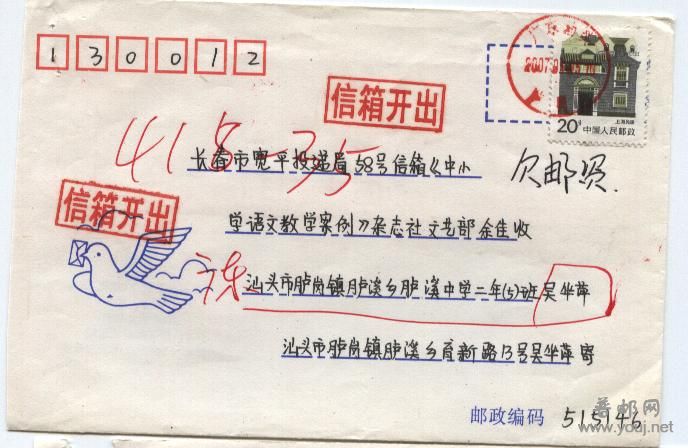 130012
20分 中国人民邮政
信箱开出
415-35
欠邮资.
长春市宽平投递局58号信箱《中小
学语文教学案例》杂志社文艺部余佳收
信箱开出
汕头市胪岗镇胪溪乡胪溪中学二年(5)班吴华萍
汕头市胪岗镇胪溪乡育新路13号吴华萍寄
邮政编码 515146
普邮网
www.yooj.net